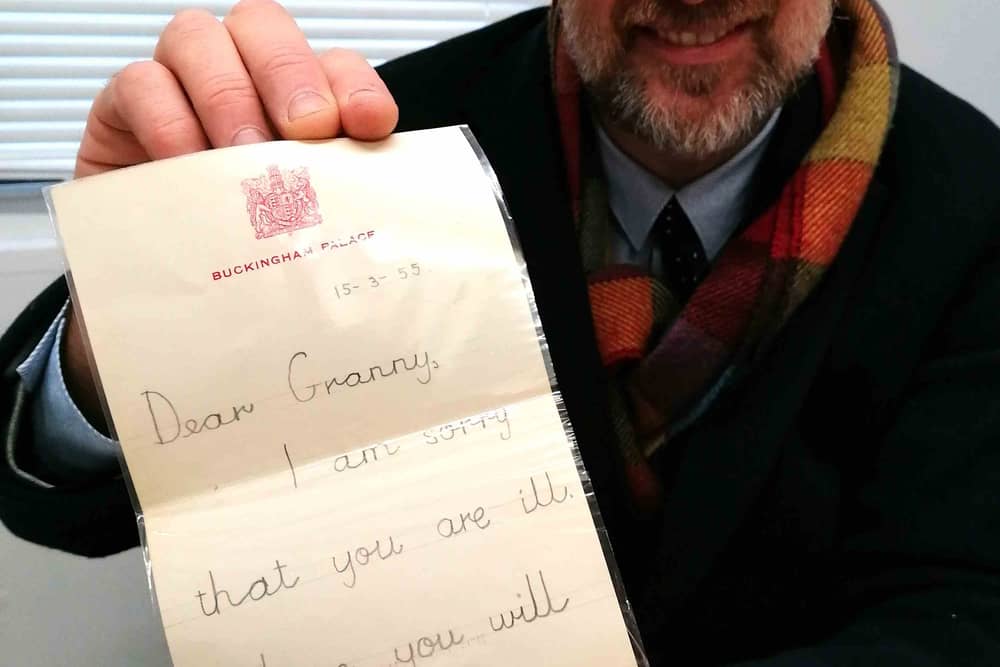 BUCKINGHAM PALACE
15-3-55.
Dear Granny,
I am sorry
that you are ill.
you will